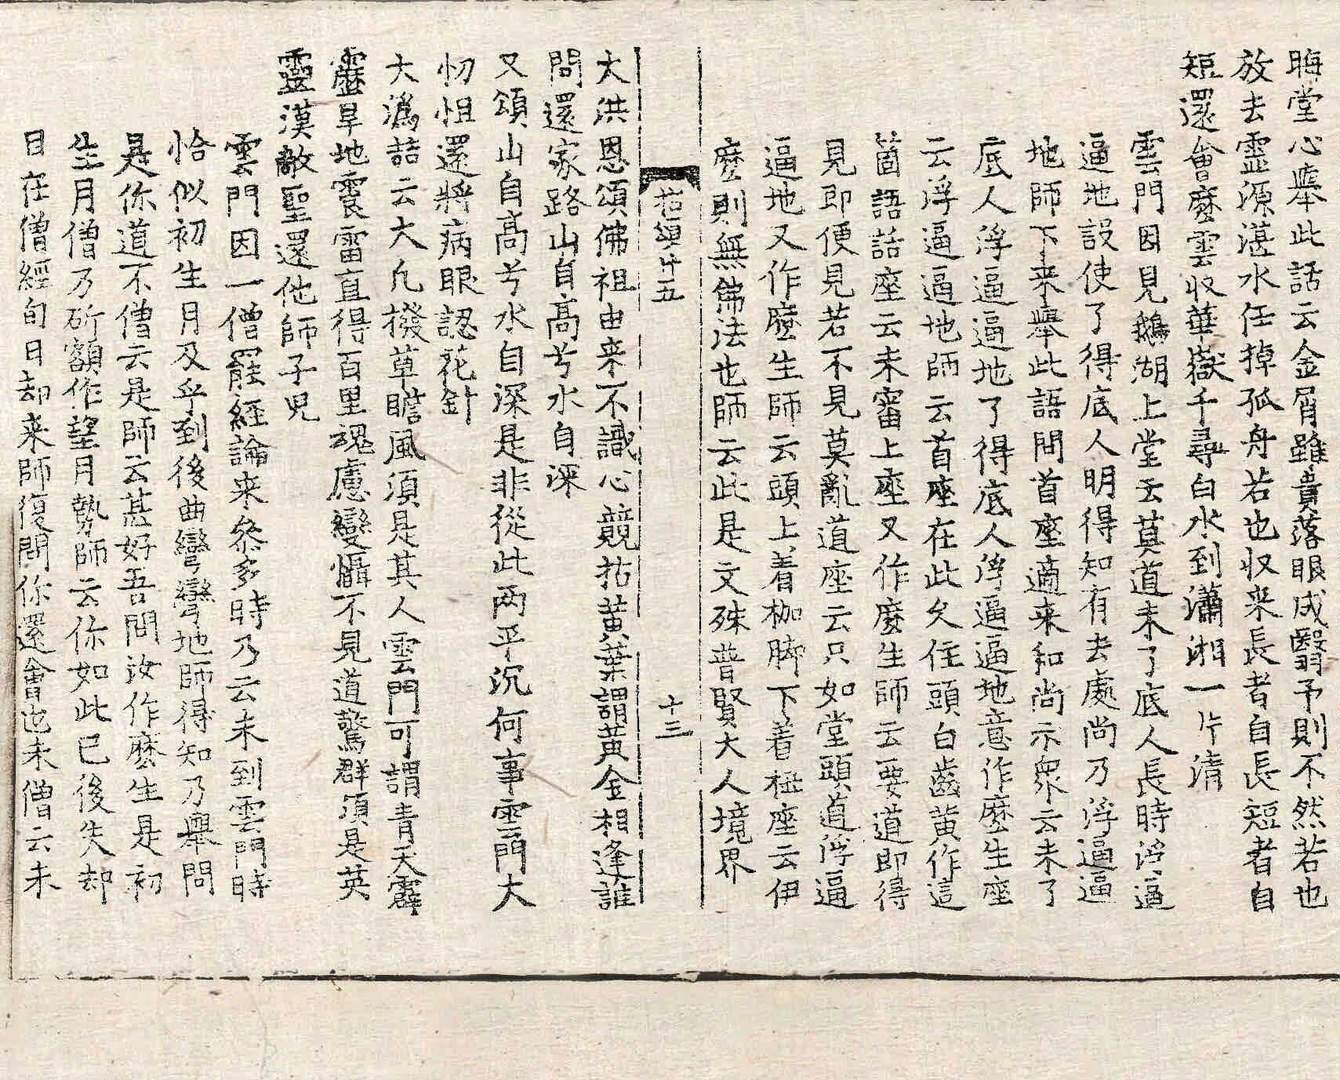 晦堂心擧此話云金屑雖貴落眼成翳予則不然若也
放去靈源湛水任掉孤舟若也収来長者自長短者自
短還會麽雲収華嶽千尋白水到瀟湘一片清
雲門因見鵝湖上堂云莫道未了底人長時浮逼
逼地設使了得底人明得知有去處尚乃浮逼逼
地師下来擧此語問首座適来和尚示衆云未了
底人浮逼逼地了得底人浮逼逼地意作麽生座
云浮逼逼地師云首座在此久住頭白齒黄作這
箇語話座云未審上座又作麽生師云要道即得
見即便見若不見莫亂道座云只如堂頭道浮逼
逼地又作麽生師云頭上着枷脚下着杻座云伊
麽則無佛法也師云此是文殊普賢大人境界
拈頌十五
十三
大洪恩頌佛祖由来不識心競拈黄葉謂黄金相逢誰
問還家路山自高兮水自深
又頌山自高兮水自深是非從此兩平沉何事雲門大
忉怛還將病眼認花針
大潙喆云大凡撥草瞻風須是其人雲門可謂青天霹
靂旱地震雷直得百里魂慮變懾不見道驚群須是英
靈漢敵聖還他師子児
雲門因一僧罷經論来叅多時乃云未到雲門時
恰似初生月及乎到後曲彎彎地師得知乃擧問
是你道不僧云是師云甚好吾問汝作麽生是初
生月僧乃斫額作望月勢師云你如此已後失却
目在僧經旬日却来師復問你還會也未僧云未